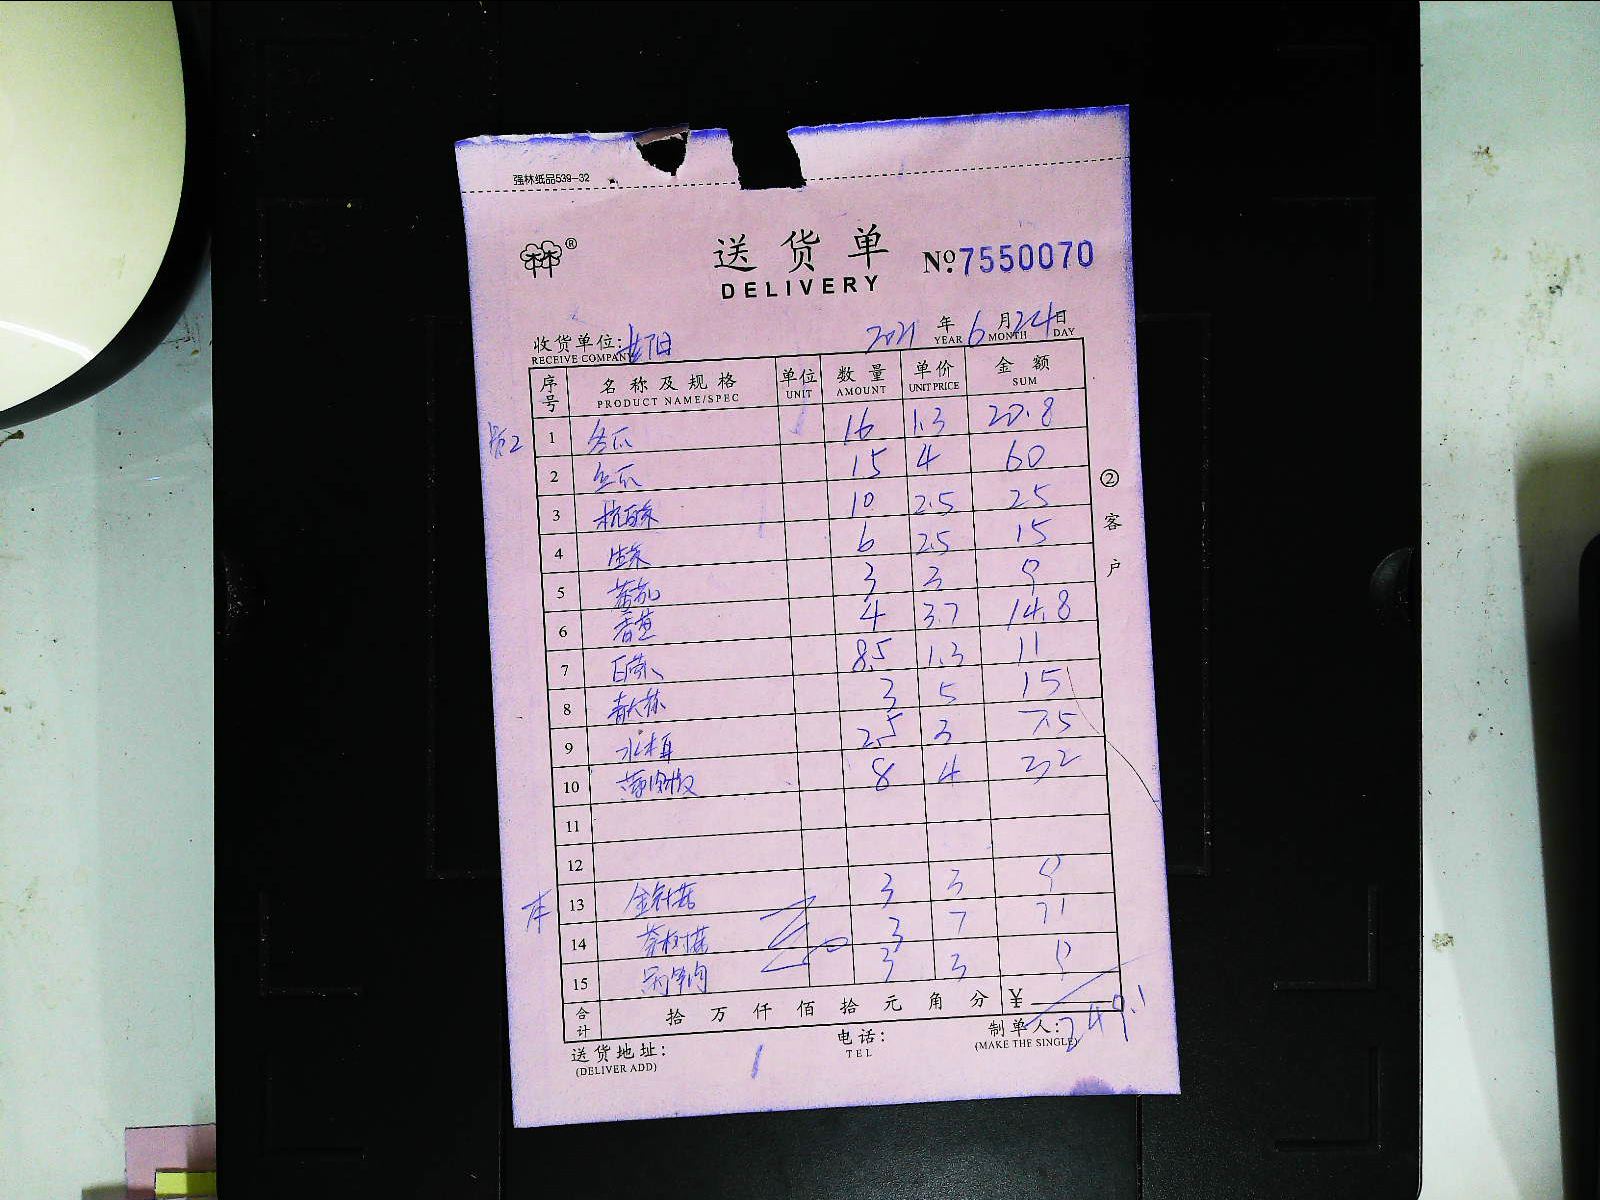 强林纸品539-32
林林®
送货单 No.7550070
DELIVERY
收货单位: 2021 年 6 月 24 日
RECEIVE COMPANY YEAR MONTH DAY
序号 名称及规格 单位 数量 单价 金额
PRODUCT NAME/SPEC UNIT AMOUNT UNIT PRICE SUM
1 冬瓜 16 1.3 20.8
2 瓜 15 4 60
3 杭白菜 10 2.5 25
4 生菜 6 2.5 15
5 蕃茄 3 3 9
6 香葱 4 3.7 14.8
7 白菜 8.5 1.3 11
8 青大蒜 3 5 15
9 水木耳 2.5 3 7.5
10 薄沙板 8 4 32
11
12
本 13 金针菇 3 3 9
14 茶树菇 3 7 21
15 3 3 9
合计 拾 万 仟 佰 拾 元 角 分 ¥ 249.1
送货地址: 电话: 制单人:
(DELIVER ADD) TEL (MAKE THE SINGLE)
② 客户